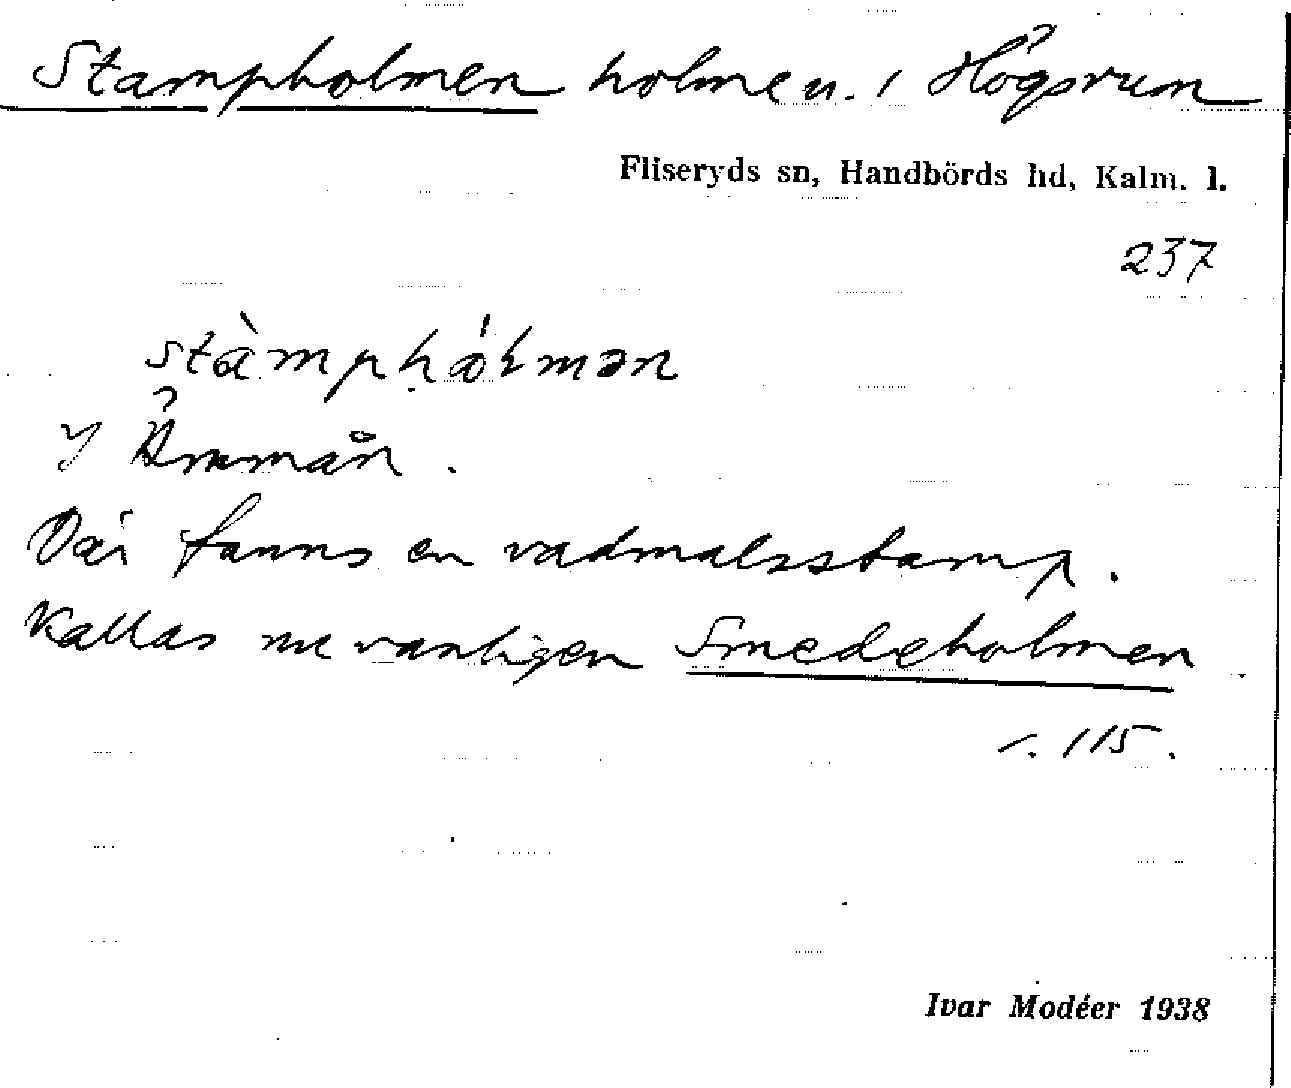 Stampholmen holme n. i Högsrum
Fliseryds sn, Handbörds hd, Kalm. l.
237
stàmphólmən
I Ämmån.
Där fanns en vadmalsstamp.
Kallas nu vanligen Smedeholmen
s. 115.
Ivar Modéer 1938